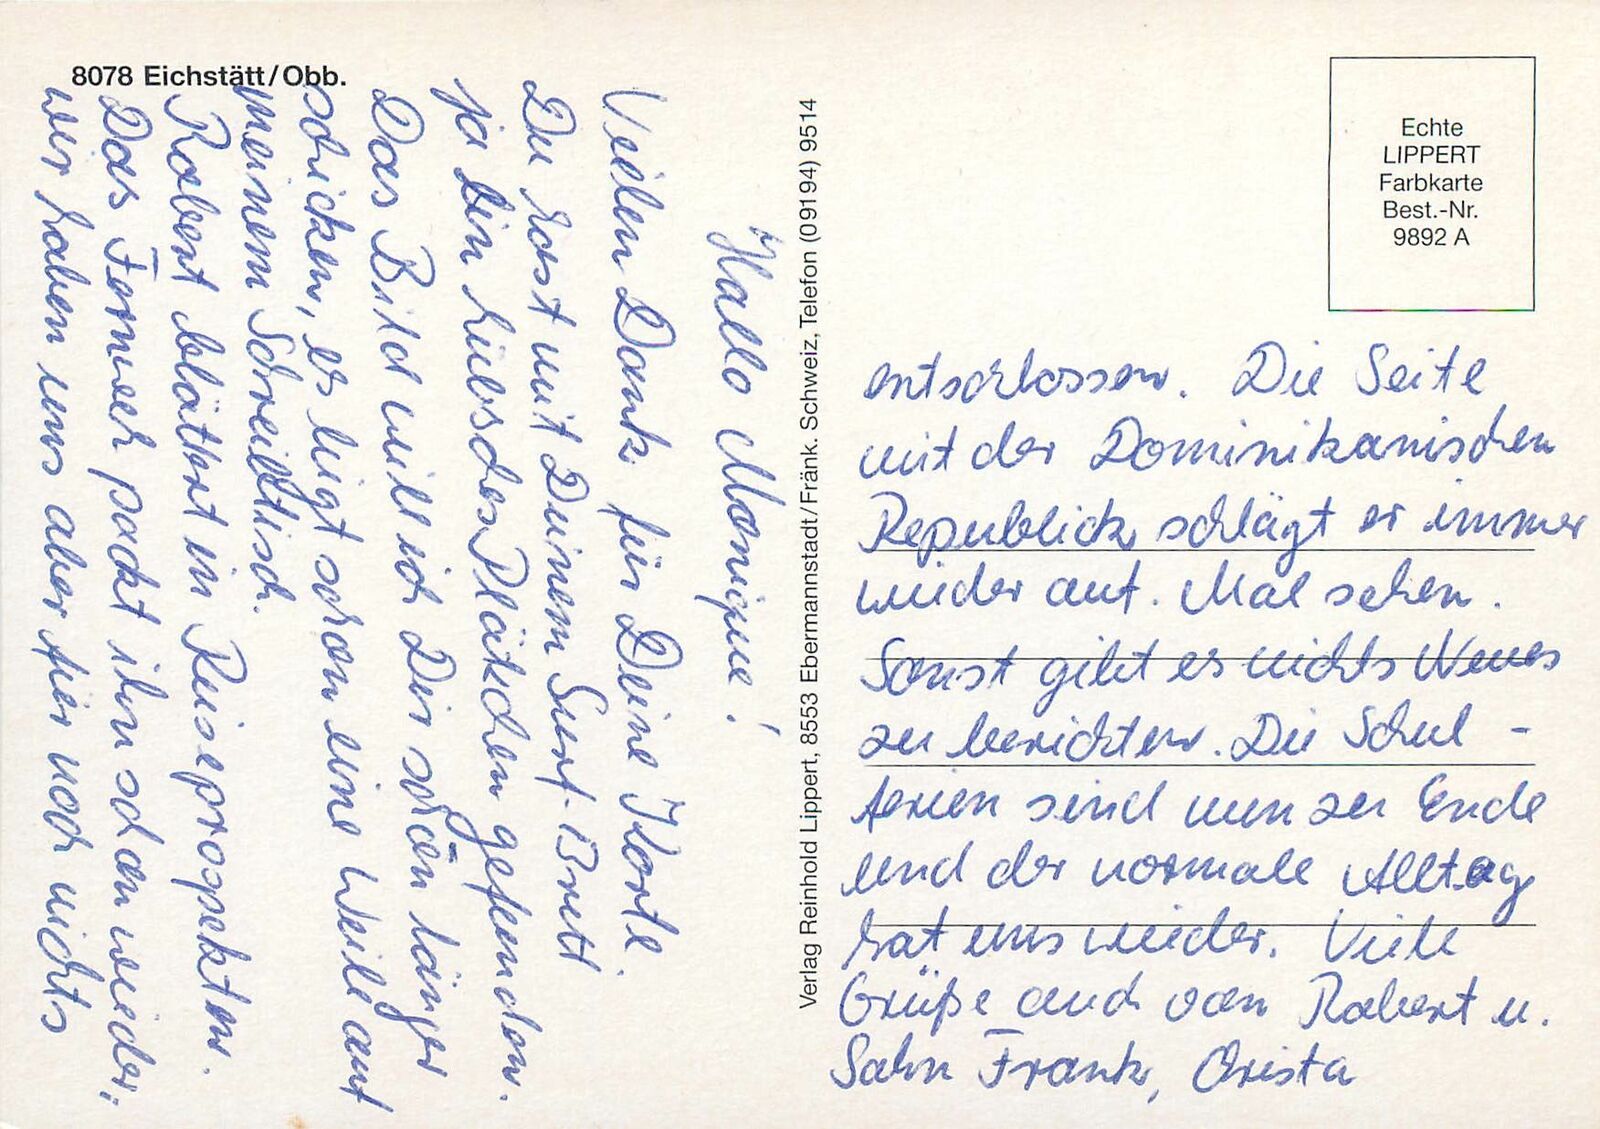 8078 Eichstätt/Obb.
Hallo Monique!
Vielen Dank für Deine Karte.
Du hast mit Deinem Surf-Brett
ja ein hübsches Plätzchen gefunden.
Das Bild will ich Dir schon länger
schicken, es liegt schon eine Weile auf
meinem Schreibtisch.
Robert blättert in Reiseprospekten.
Das Fernweh packt ihn schon wieder;
wir haben uns aber für noch nichts
Verlag Reinhold Lippert, 8553 Ebermannstadt/Fränk. Schweiz, Telefon (09194) 9514
Echte
LIPPERT
Farbkarte
Best.-Nr.
9892 A
entschlossen. Die Seite
mit der Dominikanischen
Republick schlägt er immer
wieder auf. Mal sehen.
Sonst gibt es nichts Neues
zu berichten. Die Schul-
ferien sind nun zu Ende
und der normale Alltag
hat uns wieder. Viele
Grüße auch von Robert u.
Sohn Frank, Christa